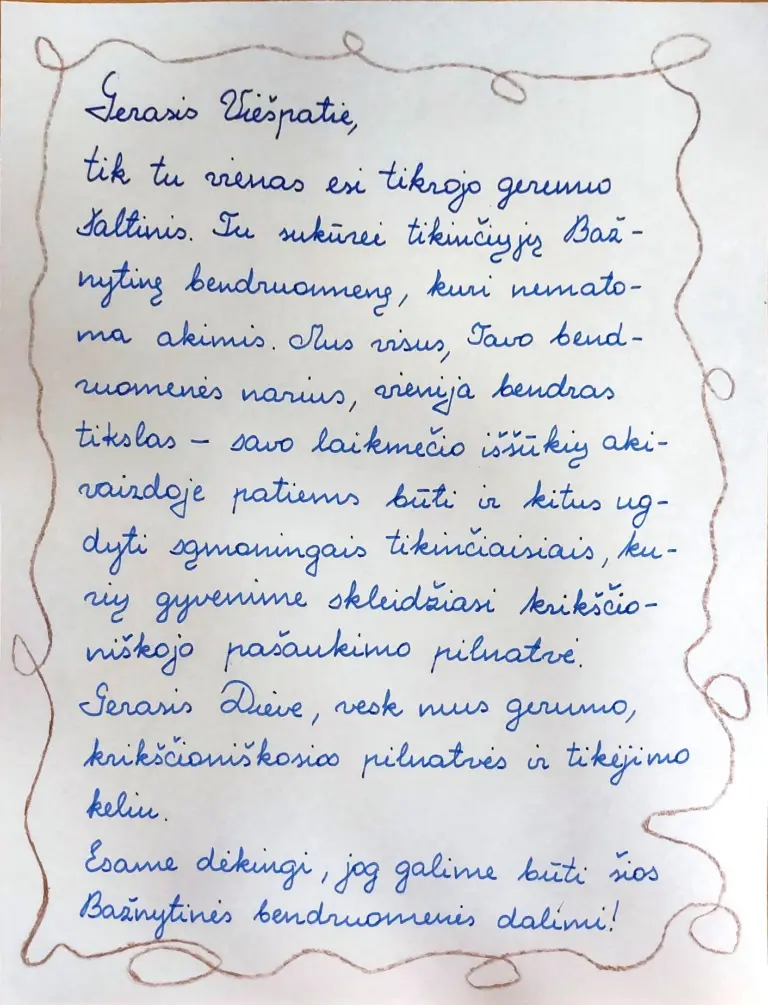 Gerasis Viešpatie,
tik tu vienas esi tikrojo gerumo
šaltinis. Tu sukūrei tikinčiųjų Baž-
nytinę bendruomenę, kuri nemato-
ma akimis. Mus visus, Tavo bend-
ruomenės narius, vienija bendras
tikslas – savo laikmečio iššūkių aki-
vaizdoje patiems būti ir kitus ug-
dyti sąmoningais tikinčiaisiais, ku-
rių gyvenime skleidžiasi krikščio-
niškojo pašaukimo pilnatvė.
Gerasis Dieve, vesk mus gerumo,
krikščioniškosios pilnatvės ir tikėjimo
keliu.
Esame dėkingi, jog galime būti šios
Bažnytinės bendruomenės dalimi!